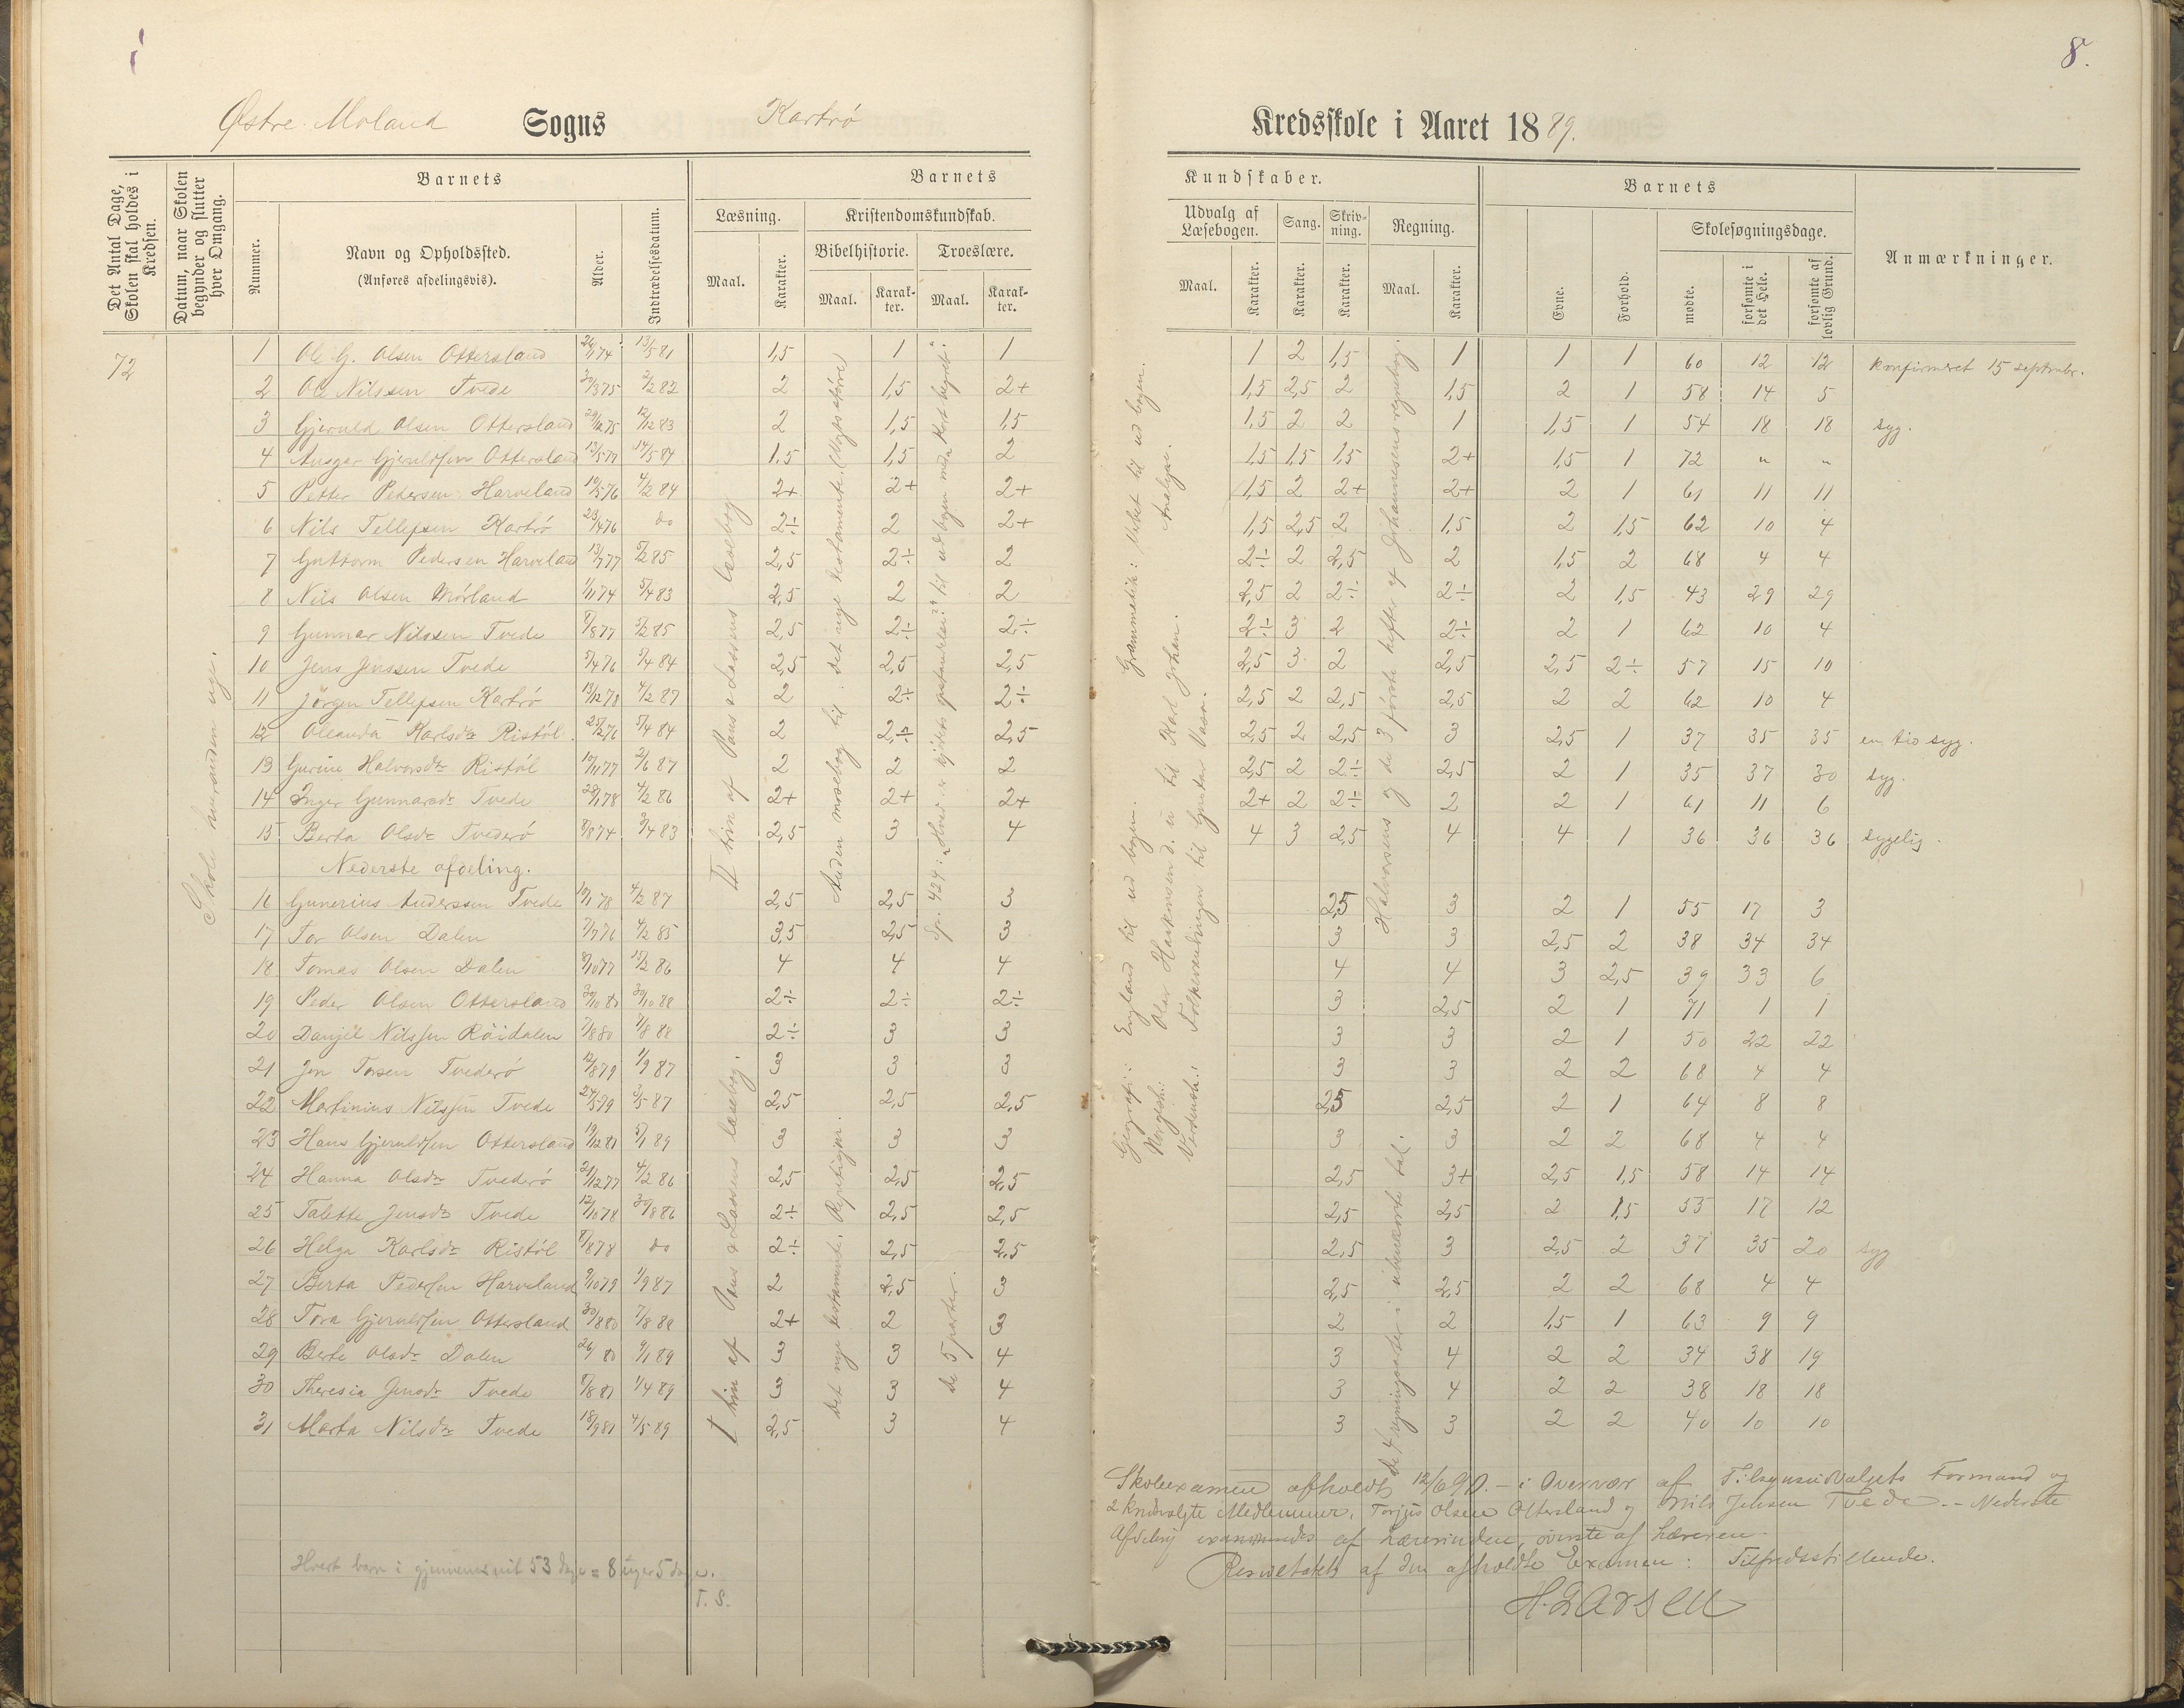 8.
Østre Moland Sogns Kartrø Kredsskole i Aaret 1889.
Det Antal Dage, Skolen skal holdes i Kredsen.
Datum, naar Skolen begynder og slutter hver Omgang.
Barnets
Nummer.
Navn og Opholdssted.
(Anføres afdelingsvis).
Alder.
Indtrædelsesdatum.
Barnets Kundskaber.
Læsning.
Maal. Karakter.
Kristendomskundskab.
Bibelhistorie. Troeslære.
Maal. Karakter. Maal. Karakter.
Udvalg af Læsebogen.
Maal. Karakter.
Sang. Karakter.
Skrivning. Karakter.
Regning.
Maal. Karakter.
Barnets
Evne. Forhold.
Skolesøgningsdage.
mødte. forsømte i det Hele. forsømte af lovlig Grund.
Anmærkninger.
72
Skole hveranden uge.
1 Ole G. Olsen Ottersland 26/1 74 13/5 81 1,5 1 1 1 2 1,5 1 1 1 60 12 12 konfirmeret 15 septmbr.
2 Ole Nilssen Tvede 30/3 75 2/2 82 2 1,5 2+ 1,5 2,5 2 1,5 2 1 58 14 5
3 Gjeruld Olsen Ottersland 12/12 83 2 1,5 1,5 1,5 2 2 1 1,5 1 54 18 18 syg.
4 Ansgar Gjeruldsen Ottersland 13/5 77 14/5 84 1,5 1,5 2 1,5 1,5 1,5 2+ 1,5 1 72 " "
5 Petter Pedersen Harveland 10/5 76 4/2 84 2+ 2+ 2+ 1,5 2 2+ 2+ 2 1 61 11 11
6 Nils Tellefsen Kartrø 23/4 76 do 2÷ 2 2+ 1,5 2,5 2 1,5 2 1,5 62 10 4
7 Guttorm Pedersen Harveland 13/7 77 5/2 85 2,5 2÷ 2 2÷ 2 2,5 2 1,5 2 68 4 4
8 Nils Olsen Mørland 1/11 74 5/4 83 2,5 2 2 2,5 2 2÷ 2÷ 2 1,5 43 29 29
9 Gunnar Nilssen Tvede 8/8 77 5/2 85 2,5 2÷ 2÷ 2÷ 3 2 2÷ 2 1 62 10 4
10 Jens Jenssen Tvede 5/4 76 5/4 84 2,5 2,5 2,5 2,5 3 2 2,5 2,5 2÷ 57 15 10
11 Jørgen Tellefsen Kartrø 13/12 78 4/2 87 2 2÷ 2÷ 2,5 2 2,5 2,5 2 2 62 10 4
12 Oleanda Karlsdr Ristøl 25/2 76 5/4 84 2 2÷ 2,5 2,5 2 2,5 3 2,5 1 37 35 35 en tid syg.
13 Gurine Halvorsdr Ristøl 10/11 77 2/6 87 2 2 2 2,5 2 2÷ 2,5 2 1 35 37 30 syg.
14 Inger Gunnarsdr Tvede 28/1 78 4/2 86 2+ 2+ 2+ 2+ 2 2÷ 2 2 1 61 11 6
15 Berta Olsdr Tvederø 8/8 74 9/4 83 2,5 3 4 4 3 2,5 4 4 1 36 36 36 sygelig.
Nederste afdeling.
16 Gunerius Anderssen Tvede 10/1 78 4/2 87 2,5 2,5 3 2,5 3 2 1 55 17 3
17 Tor Olsen Dalen 7/7 76 4/2 85 3,5 2,5 3 3 3 2,5 2 38 34 34
18 Tomas Olsen Dalen 8/10 77 15/2 86 4 4 4 4 4 3 2,5 39 33 6
19 Peder Olsen Ottersland 30/10 81 30/10 88 2÷ 2÷ 2÷ 3 2,5 2 1 71 1 1
20 Danjel Nilssen Røidalen 7/8 80 7/8 88 2÷ 3 3 3 3 2 1 50 22 22
21 Jon Torsen Tvederø 12/8 79 1/9 87 3 3 3 3 3 2 2 68 4 4
22 Martinius Nilssen Tvede 24/5 79 3/5 87 2,5 2,5 2,5 2,5 2,5 2 1 64 8 8
23 Hans Gjeruldsen Ottersland 19/12 81 5/1 89 3 3 3 3 3 2 2 68 4 4
24 Hanna Olsdr Tvederø 21/12 77 4/2 86 2,5 2,5 2,5 2,5 3+ 2,5 1,5 58 14 14
25 Talette Jensdr Tvede 12/10 78 30/8 86 2÷ 2,5 2,5 2,5 2,5 2 1,5 55 17 12
26 Helga Karlsdr Ristøl 8/8 78 do 2÷ 2,5 2,5 2,5 3 2,5 2 37 35 20 syg
27 Berta Pedersen Harveland 9/10 79 1/9 87 2 2,5 3 2,5 2,5 2 2 68 4 4
28 Tora Gjeruldsen Ottersland 30/8 80 7/8 88 2+ 2 3 2 2 1,5 1 63 9 9
29 Berte Olsdr Dalen 26/ 80 9/1 89 3 3 4 3 4 2 2 34 38 19
30 Theresia Jensdr Tvede 8/8 81 1/4 89 3 3 4 3 4 2 2 38 18 18
31 Marta Nilsdr Tvede 18/9 81 4/5 89 2,5 3 4 3 3 2 2 40 10 10
II trin af Paus & Lassens læsebog
I trin af Paus & Lassens læsebog.
Anden mosebog til: det nye testamente. (Vogts større)
Det nye testamente. Repetisjon.
Sp. 424: "Hvad er kjødets opstandelse?" til ud bogen med "Kort begreb".
de 5 parter.
Geografi: England til ud bogen. Grammatik: Verbet til ud bogen.
Norgesh.: Olav Haakonsend. u. til Karl Johan. Analyse.
Verdensh.: Folkevandringen til Gustav Vasa.
Halvorsens og de 3 første hefter af Johannesens regnebog.
de 4 regningsarter i ubenævnte tal.
Hvert barn i gjennemsnit 53 dage = 8 uger 5 dage.
T. S.
Skoleexamen afholdt 12/6 90. – i Overvær af Tilsynsudvalgets Formand og
2 kredsvalgte Medlemmer, Torjus Olsen Ottersland og Nils Jensen Tvede. – Nederste
Afdeling examineredes af Lærerinden, øverste af Læreren.
Resultatet af den afholdte Examen: Tilfredsstillende.
H. Larsen